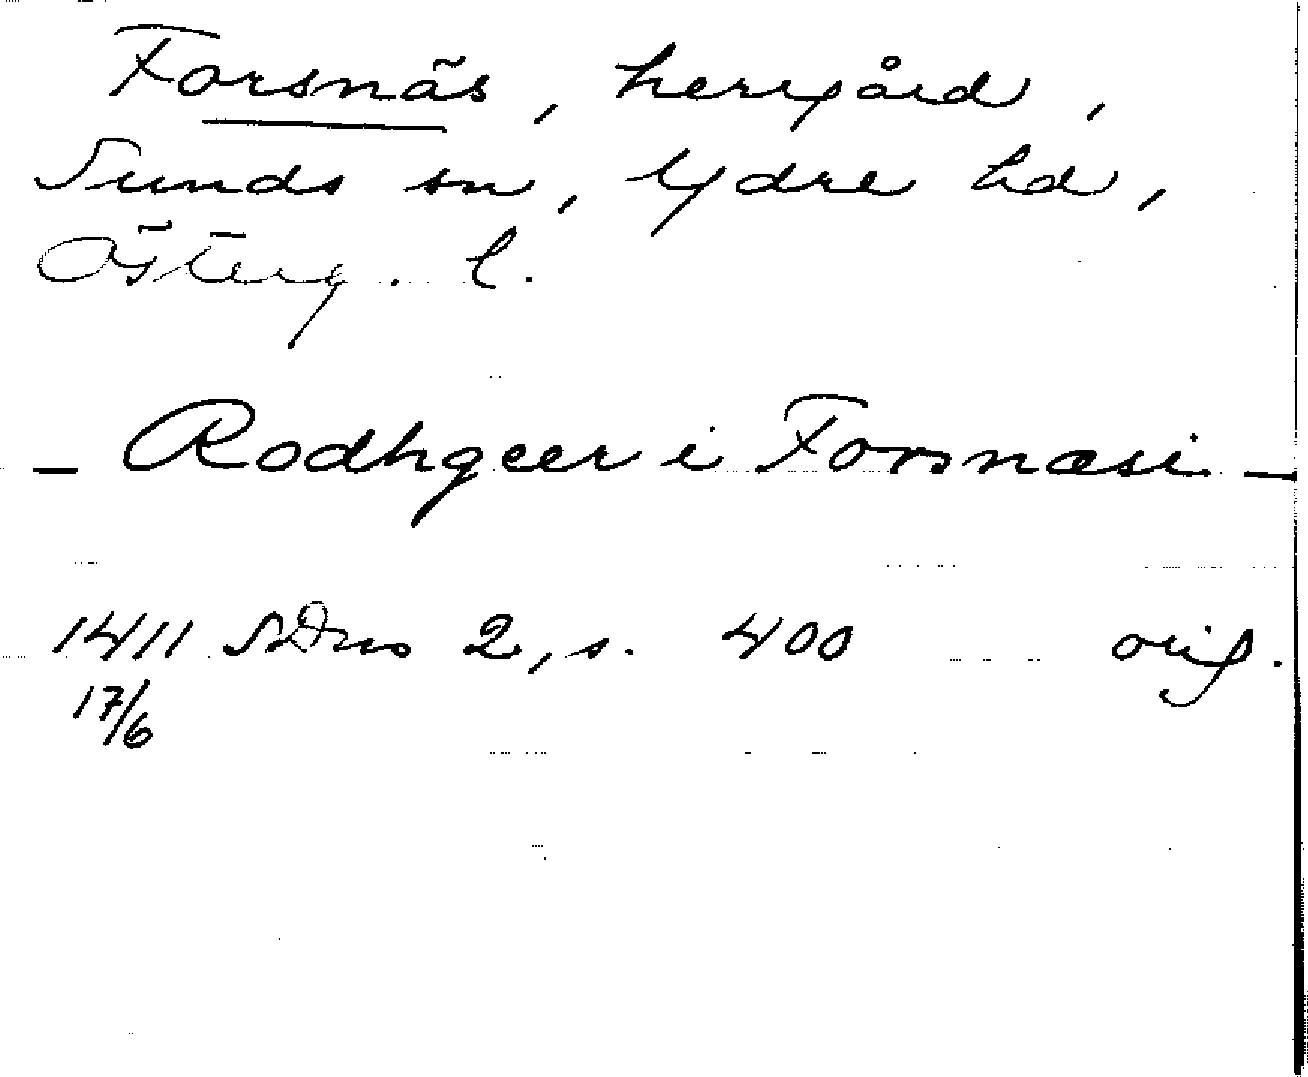 Forsnäs, herrgård,
Sunds sn, Ydre hd,
Österg. l.
– Rodhgeer i Forsnæsi –
1411 SDns 2, s. 400 orig.
17/6